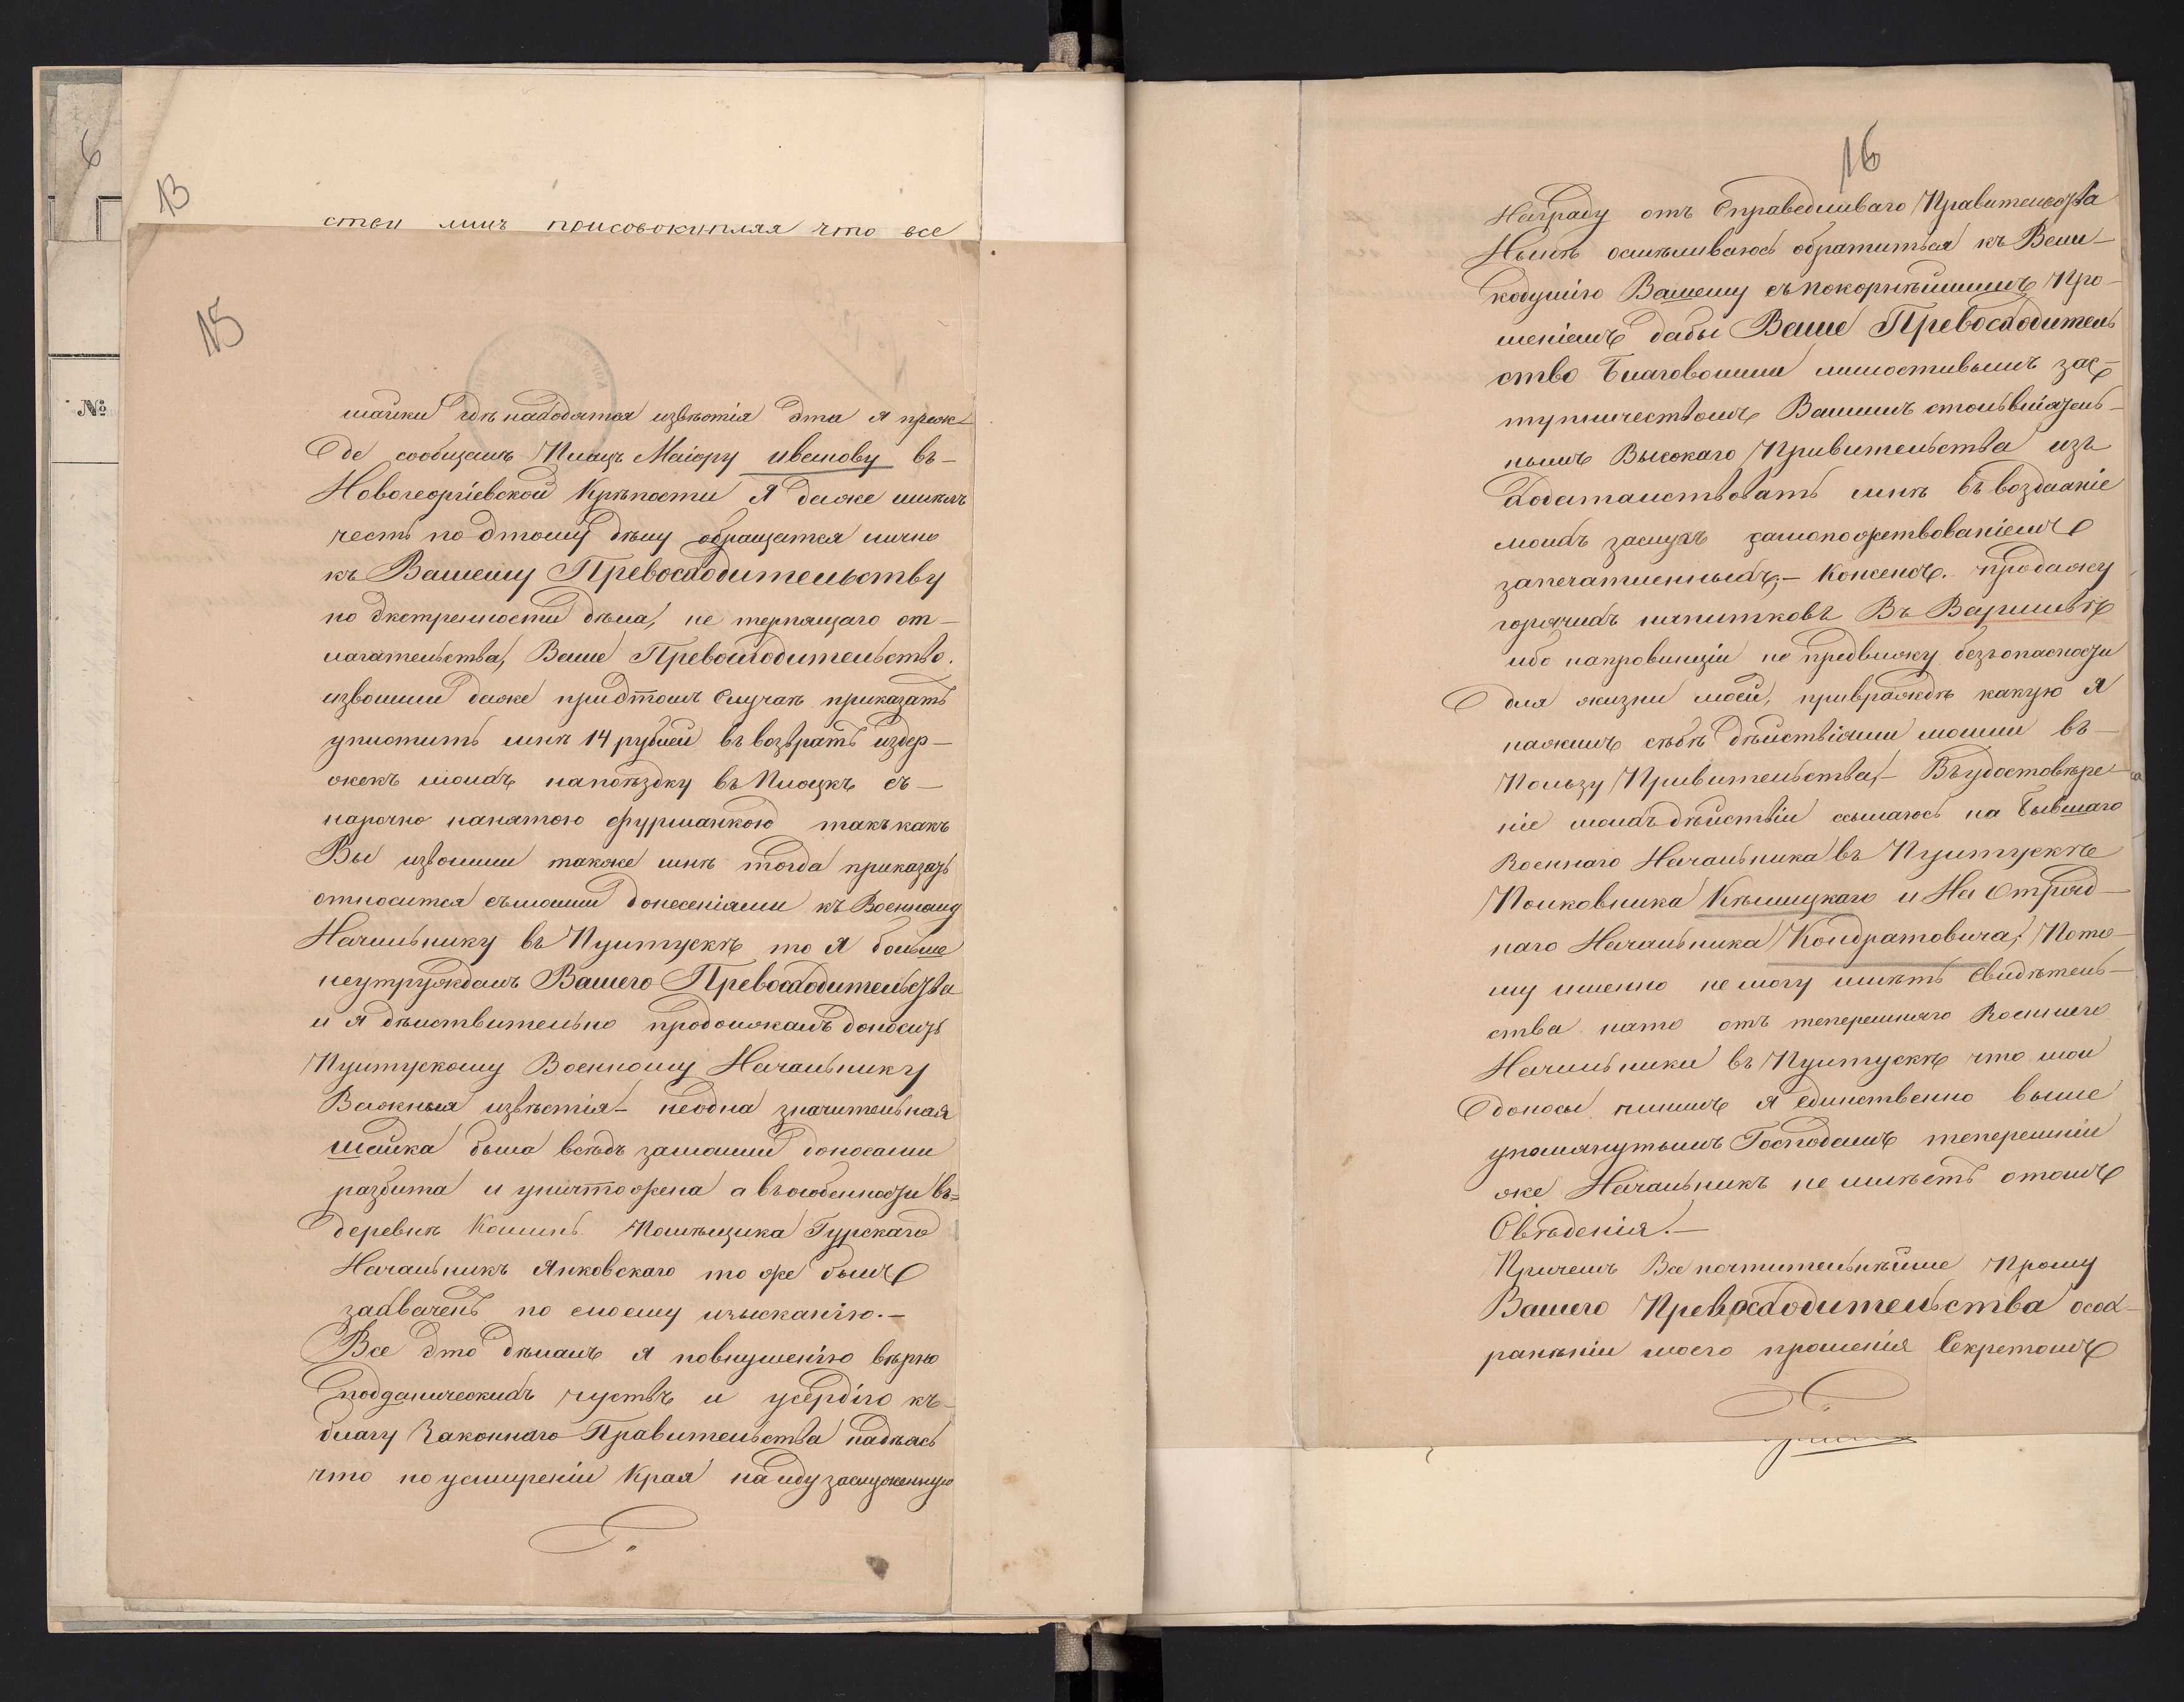 6
13
стви мнѣ присовокупляя что все
15
№
шайки гдѣ находятся извѣстія эта я преж-
де сообщалъ Плацъ Маіору Иванову въ-
Новогеоргіевской Крѣпости Я даже имѣлъ
честь по этому дѣлу обращатся лично
къ Вашему Превосходительству
по экстренности дѣла, не терпящаго от-
лагательства, Ваше Превосходительство.
изволили даже приэтомъ Случаѣ приказать
уплотить мнѣ 14 рублей въ возвратъ издер-
жекъ моихъ напоѣздку въ Плоцкъ съ-
нарочно нанятою фурманкою такъ какъ
Вы изволили также мнѣ тогда приказать
относится съмоими донесеніями къ Военному
Начальнику въ Пултускѣ то я больше
неутруждалъ Вашего Превосходительства
и я дѣиствительно продолжалъ доносить
Пултускому Военному Начальнику
Важныя извѣстія - неодна значительная
шайка была вслѣдъ замоими доносами
разбита и уничтожена а въособенности въ=
деревнѣ Помѣщика Гурскаго
Начальникъ Янковскаго то же былъ
захваченъ по моему изысканію.-
Все это дѣлалъ я повнушенію вѣрно
подданическихъ чуствъ и усердію къ-
благу Законнаго Правительства надѣясь
что по усмиреніи Края найду заслуженную
16
Награду отъ Справедливаго Правительства
Нынѣ осмѣливаюсь обратиться къ Вели-
кодушію Вашему съ покорнѣйшимъ Про-
шеніемъ дабы Ваше Превосходитель
ство Благоволили милостивымъ зас-
тупничествомъ Вашимъ
нымъ Высокаго Правительства изъ
ходатайствовать мнѣ въ воздаяніе
моихъ заслугъ самопожертвованіемъ
запечатленныхъ,- Консенсъ. продажу
горячихъ напитковъ Въ Варшавѣ
ибо напровинціи не предвижу безъопасности
для жизни моей, привраждѣ какую я
нажилъ себѣ дѣйствіями моими въ-
Пользу Правительства,- Въудостовѣре-
ніе моихъ дѣйствіи ссылаюсь на бывшаго
Военнаго Начальника въ Пултускѣ
Полковника и На Отряд-
наго Начальника Кондратовича, Пото-
му именно не могу имѣть Свидѣтель-
ства нато отъ теперешняго Военнаго
Начальника въ Пултускѣ что мои
доносы чинилъ я единственно выше
упомянутымъ Господамъ теперешніи
же Начальникъ не имѣетъ отомъ
Свѣденія.-
Причемъ Все почтительнѣйше Прошу
Вашего Превосходительства осох-
раненіи моего прошенія Секретомъ